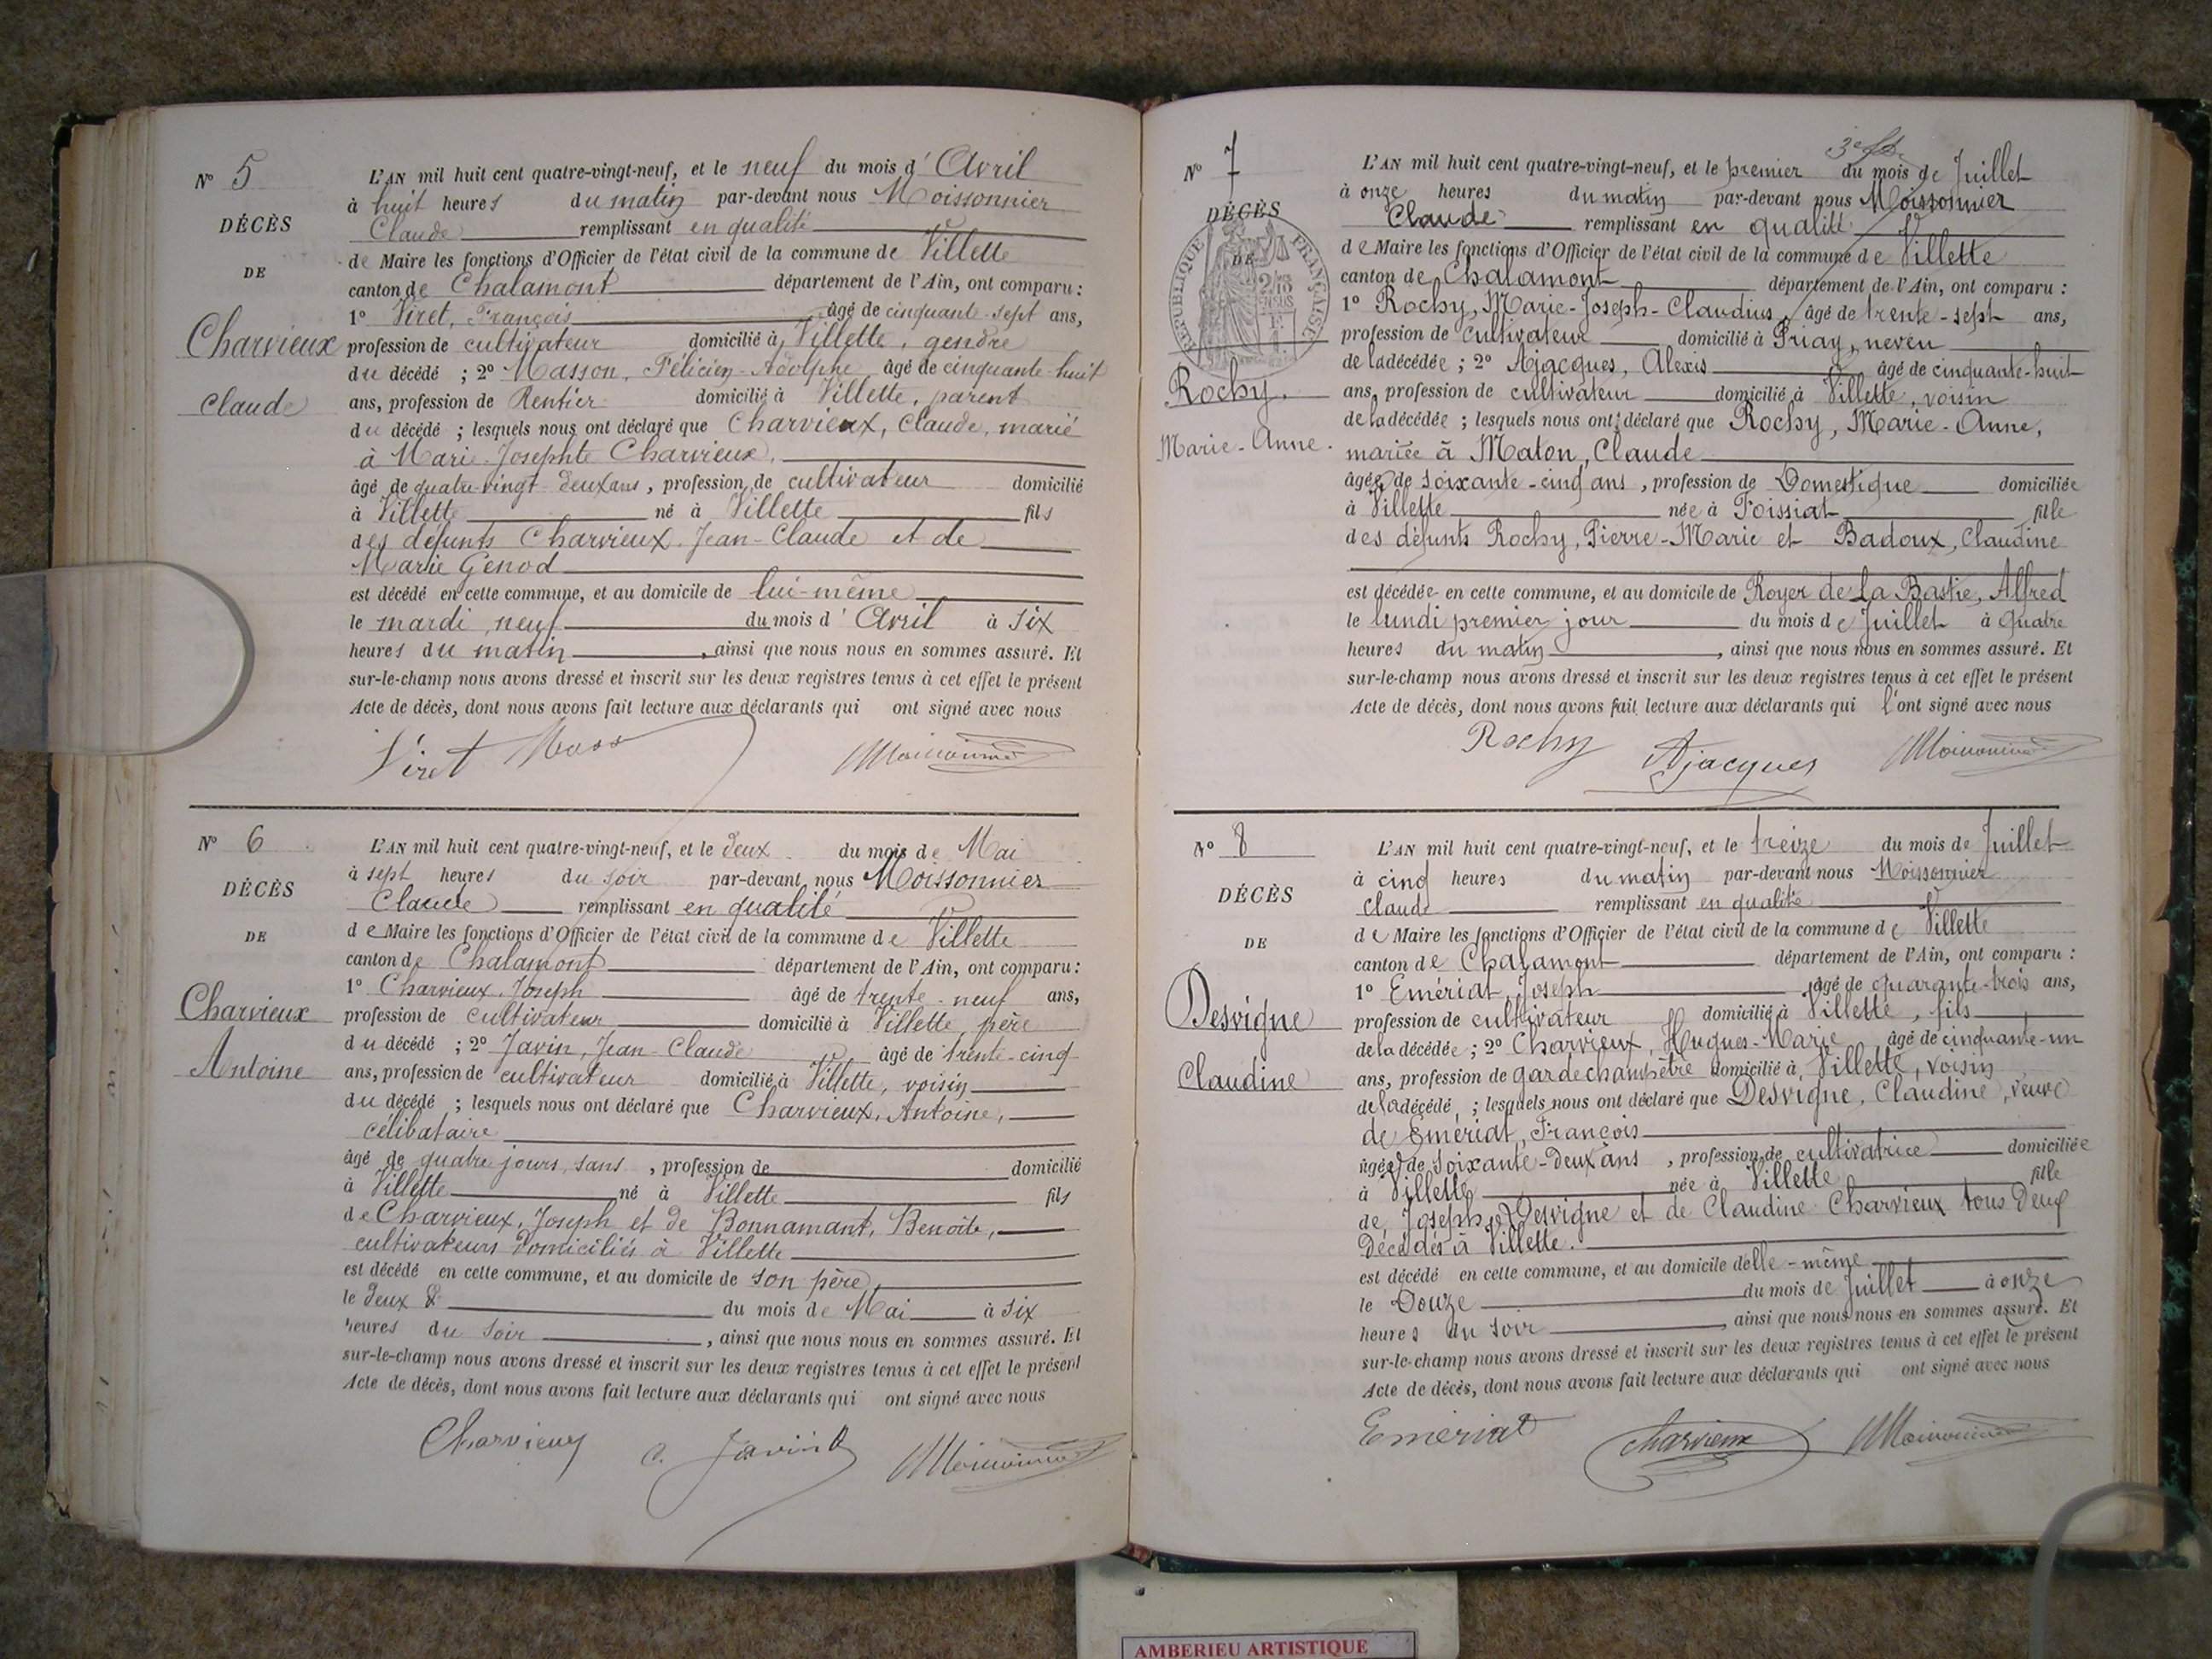 N° 5
DÉCÈS
DE
Charvieux
Claude
L'AN mil huit cent quatre-vingt-neuf, et le neuf du mois d'Avril
à huit heures du matin par-devant nous Moissonnier
Claude remplissant en qualité
de Maire les fonctions d'Officier de l'état civil de la commune de Villette
canton de Chalamont département de l'Ain, ont comparu :
1° Viret, François âgé de cinquante-sept ans,
profession de cultivateur domicilié à Villette, gendre
du décédé ; 2° Masson, Félicien-Adolphe âgé de cinquante-huit
ans, profession de Rentier domicilié à Villette, parent
du décédé ; lesquels nous ont déclaré que Charvieux, Claude, marié
à Marie-Josephte Charvieux,
âgé de quatre-vingt-deux ans, profession de cultivateur domicilié
à Villette né à Villette fils
des défunts Charvieux Jean-Claude et de
Marie Genod
est décédé en cette commune, et au domicile de lui-même
le mardi neuf du mois d'Avril à six
heures du matin, ainsi que nous nous en sommes assuré. Et
sur-le-champ nous avons dressé et inscrit sur les deux registres tenus à cet effet le présent
Acte de décès, dont nous avons fait lecture aux déclarants qui ont signé avec nous
Viret Mass Moissonnier
N° 6
DÉCÈS
DE
Charvieux
Antoine
L'AN mil huit cent quatre-vingt-neuf, et le deux du mois de Mai
à sept heures du soir par-devant nous Moissonnier
Claude remplissant en qualité
de Maire les fonctions d'Officier de l'état civil de la commune de Villette
canton de Chalamont département de l'Ain, ont comparu :
1° Charvieux, Joseph âgé de trente-neuf ans,
profession de cultivateur domicilié à Villette, père
du décédé ; 2° Javin, Jean-Claude âgé de trente-cinq
ans, profession de cultivateur domicilié à Villette, voisin
du décédé ; lesquels nous ont déclaré que Charvieux, Antoine,
célibataire
âgé de quatre jours, sans, profession de domicilié
à Villette né à Villette fils
de Charvieux, Joseph et de Bonnamant, Benoîte,
cultivateurs domiciliés à Villette
est décédé en cette commune, et au domicile de son père,
le deux du mois de Mai à six
heures du soir, ainsi que nous nous en sommes assuré. Et
sur-le-champ nous avons dressé et inscrit sur les deux registres tenus à cet effet le présent
Acte de décès, dont nous avons fait lecture aux déclarants qui ont signé avec nous
Charvieux C. Javin Moissonnier
N° 7
DÉCÈS
DE
RÉPUBLIQUE FRANÇAISE
Rochy,
Marie-Anne.
L'AN mil huit cent quatre-vingt-neuf, et le premier du mois de Juillet
à onze heures du matin par-devant nous Moissonnier
Claude remplissant en qualité
de Maire les fonctions d'Officier de l'état civil de la commune de Villette
canton de Chalamont département de l'Ain, ont comparu :
1° Rochy, Marie-Joseph-Claudius, âgé de trente-sept ans,
profession de cultivateur domicilié à Priay, neveu
de la décédée ; 2° Ajacques, Alexis âgé de cinquante-huit
ans, profession de cultivateur domicilié à Villette, voisin
de la décédée ; lesquels nous ont déclaré que Rochy, Marie-Anne,
mariée à Maton, Claude
âgée de soixante-cinq ans, profession de Domestique domiciliée
à Villette née à Foissiat fille
des défunts Rochy, Pierre-Marie et Badoux, Claudine
est décédée en cette commune, et au domicile de Royer de La Bastie, Alfred
le lundi premier jour du mois de Juillet à quatre
heures du matin, ainsi que nous nous en sommes assuré. Et
sur-le-champ nous avons dressé et inscrit sur les deux registres tenus à cet effet le présent
Acte de décès, dont nous avons fait lecture aux déclarants qui l'ont signé avec nous
Rochy Ajacques Moissonnier
N° 8
DÉCÈS
DE
Desvigne
Claudine
L'AN mil huit cent quatre-vingt-neuf, et le treize du mois de Juillet
à cinq heures du matin par-devant nous Moissonnier
Claude remplissant en qualité
de Maire les fonctions d'Officier de l'état civil de la commune de Villette
canton de Chalamont département de l'Ain, ont comparu :
1° Emériat, Joseph âgé de quarante-trois ans,
profession de cultivateur domicilié à Villette, fils
de la décédée ; 2° Charvieux, Hugues-Marie âgé de cinquante-un
ans, profession de garde champêtre domicilié à Villette, voisin
de la décédé ; lesquels nous ont déclaré que Desvigne, Claudine, veuve
de Emériat, François
âgée de soixante-deux ans, profession de cultivatrice domiciliée
à Villette née à Villette fille
de Joseph Desvigne et de Claudine Charvieux tous deux
décédés à Villette.
est décédé en cette commune, et au domicile d'elle-même
le Douze du mois de Juillet à onze
heures du soir, ainsi que nous nous en sommes assuré. Et
sur-le-champ nous avons dressé et inscrit sur les deux registres tenus à cet effet le présent
Acte de décès, dont nous avons fait lecture aux déclarants qui ont signé avec nous
Emériat Charvieux Moissonnier
AMBERIEU ARTISTIQUE